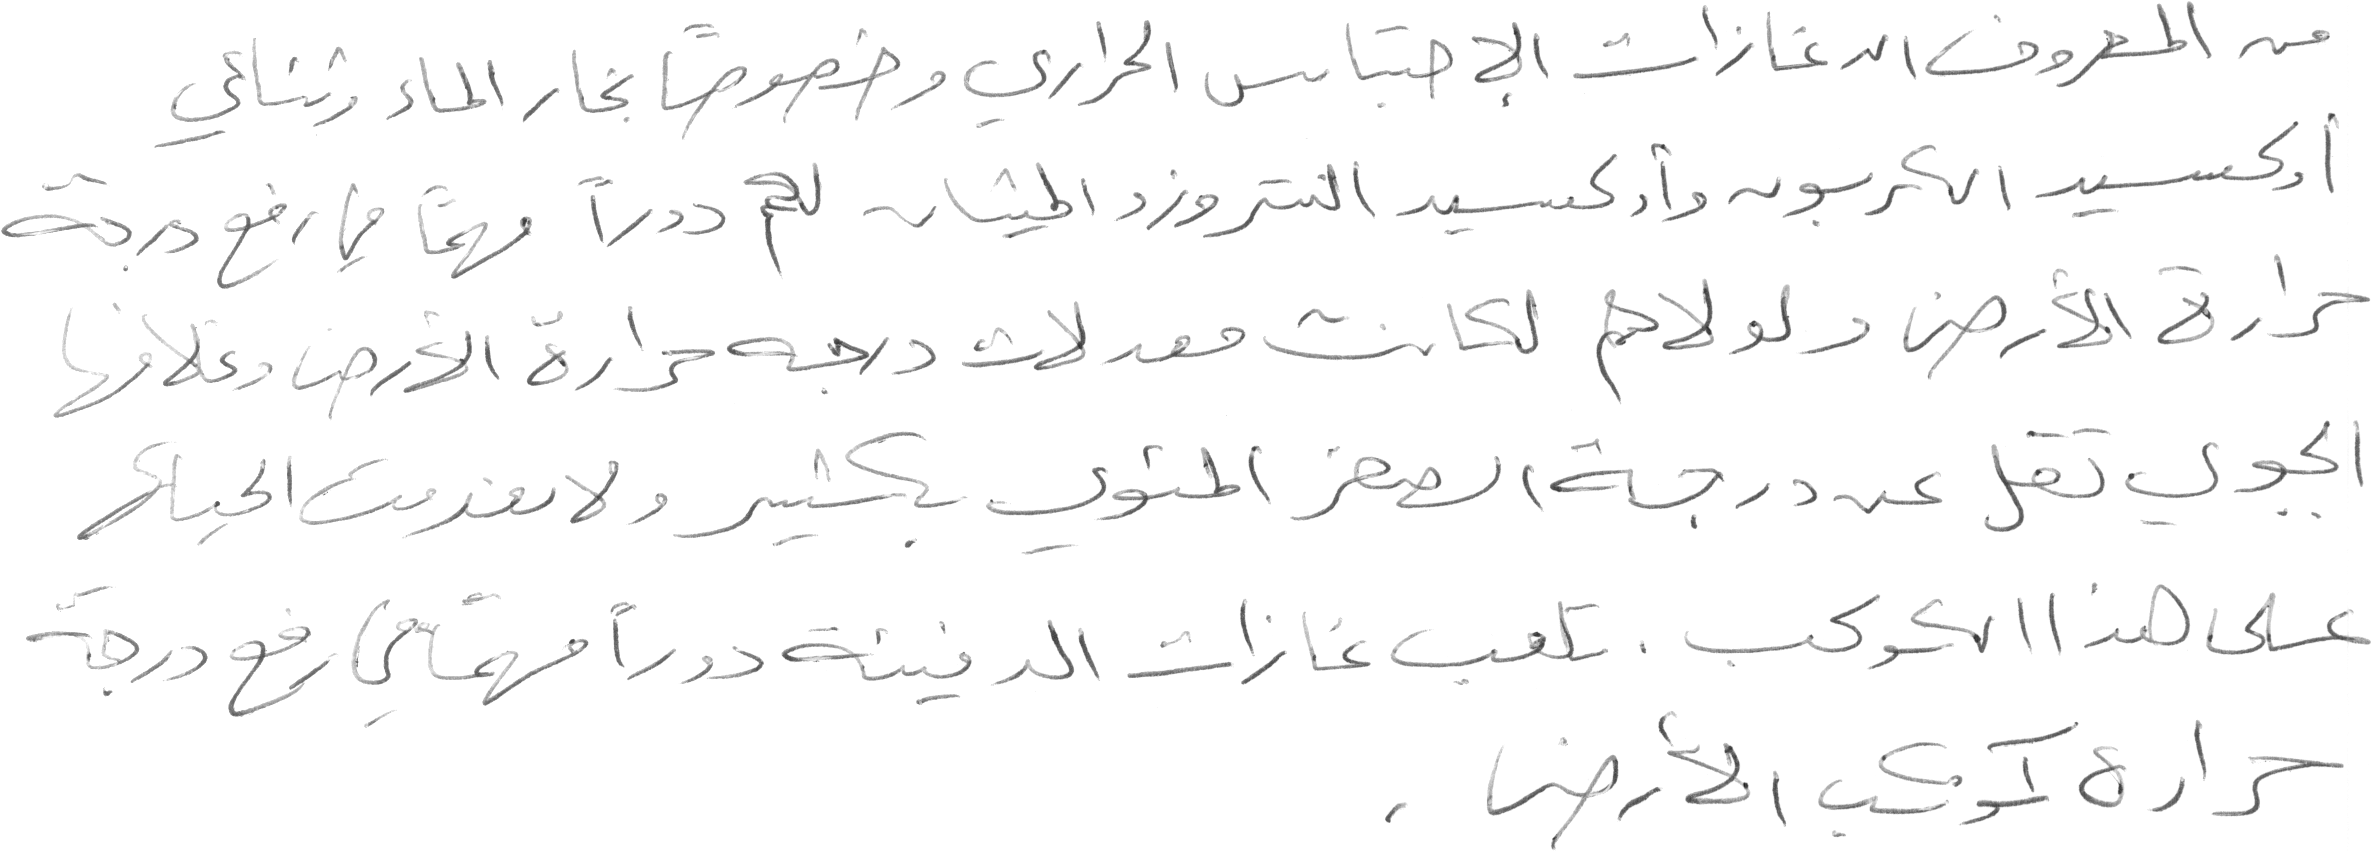 من المعروف ان غازات الإحتباس الحراري وخصوصاً بخار الماء وثنائي
أوكسيد الكربون وأوكسيد النتروز والميثان لهم دوراً مهماً في رفع درجة
حرارة الأرض ولولاهم لكانت معدلات درجة حرارة الأرض وغلافها
الجوي تقل عن درجة الصفر المئوي بكثير ولانعدمت الحياة
على هذا الكوكب. تلعب غازات الدفيئة دوراً مهماً في رفع درجة
حرارة كوكب الأرض.